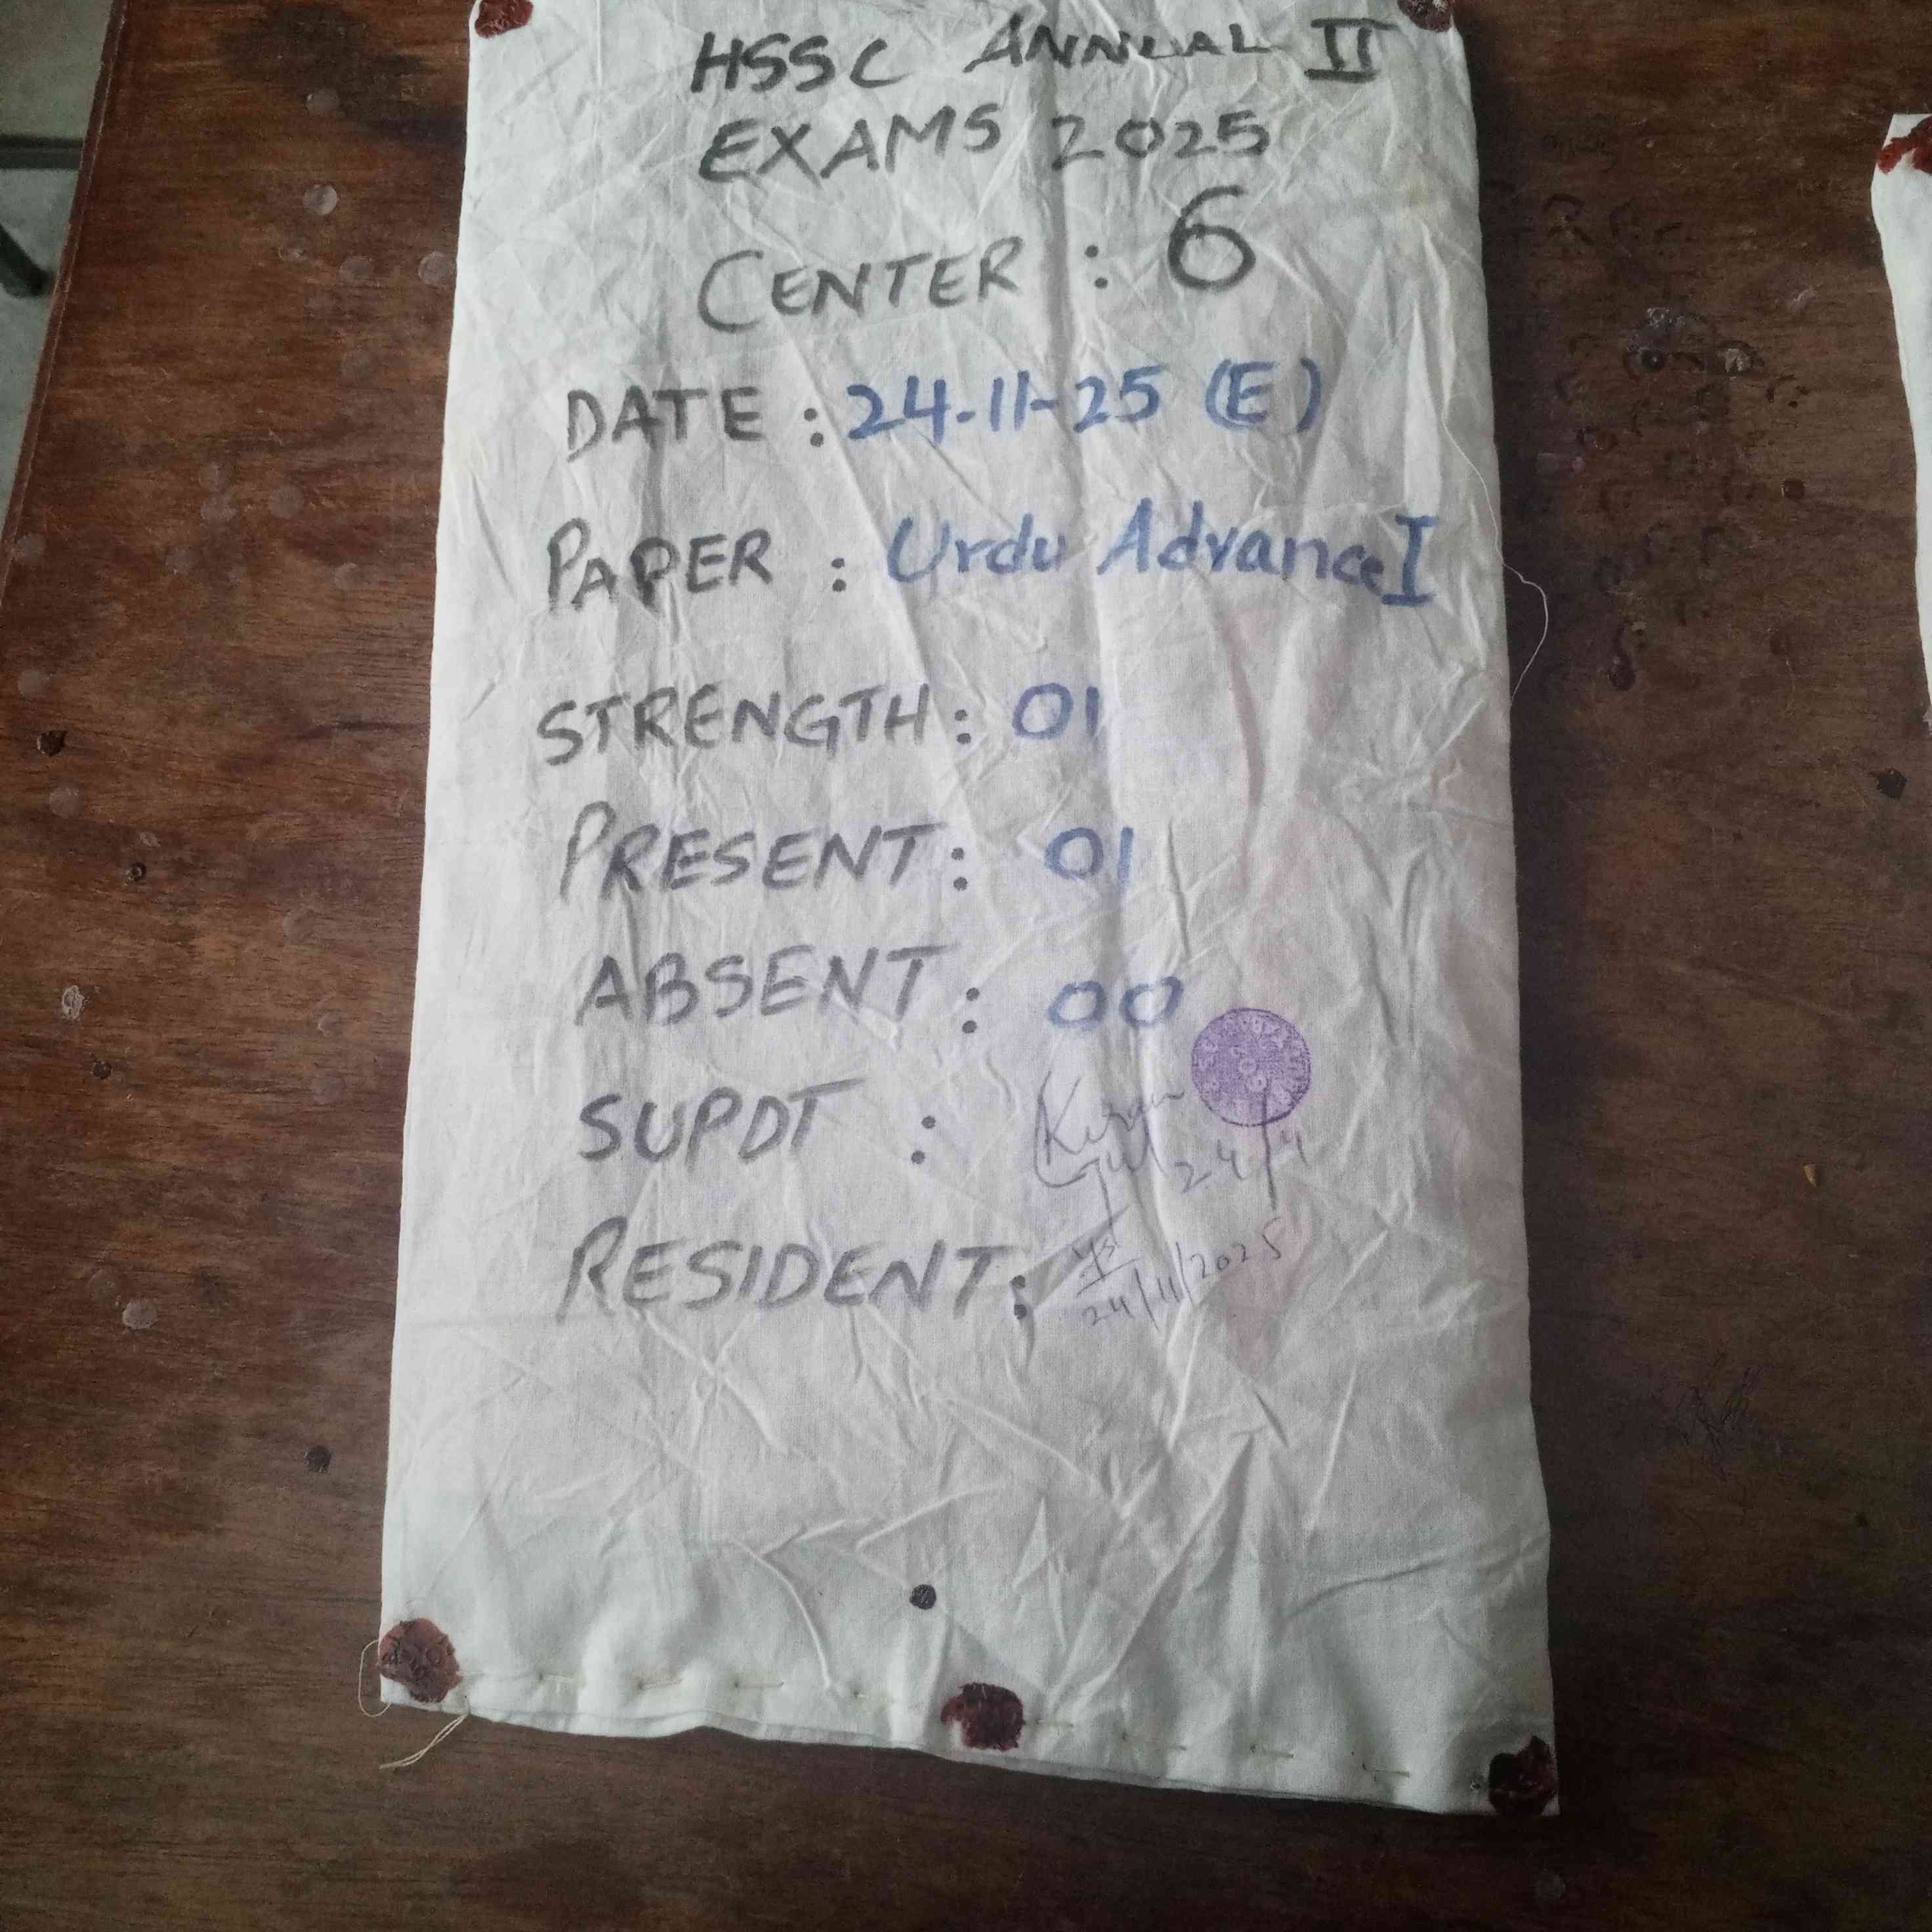 HSSC ANNUAL II
EXAMS 2025
CENTER : 6
DATE : 24-11-25 (E)
PAPER : Urdu Advance I
STRENGTH : 01
PRESENT : 01
ABSENT : 00
SUPDT :
24/4
RESIDENT :
24/11/2025